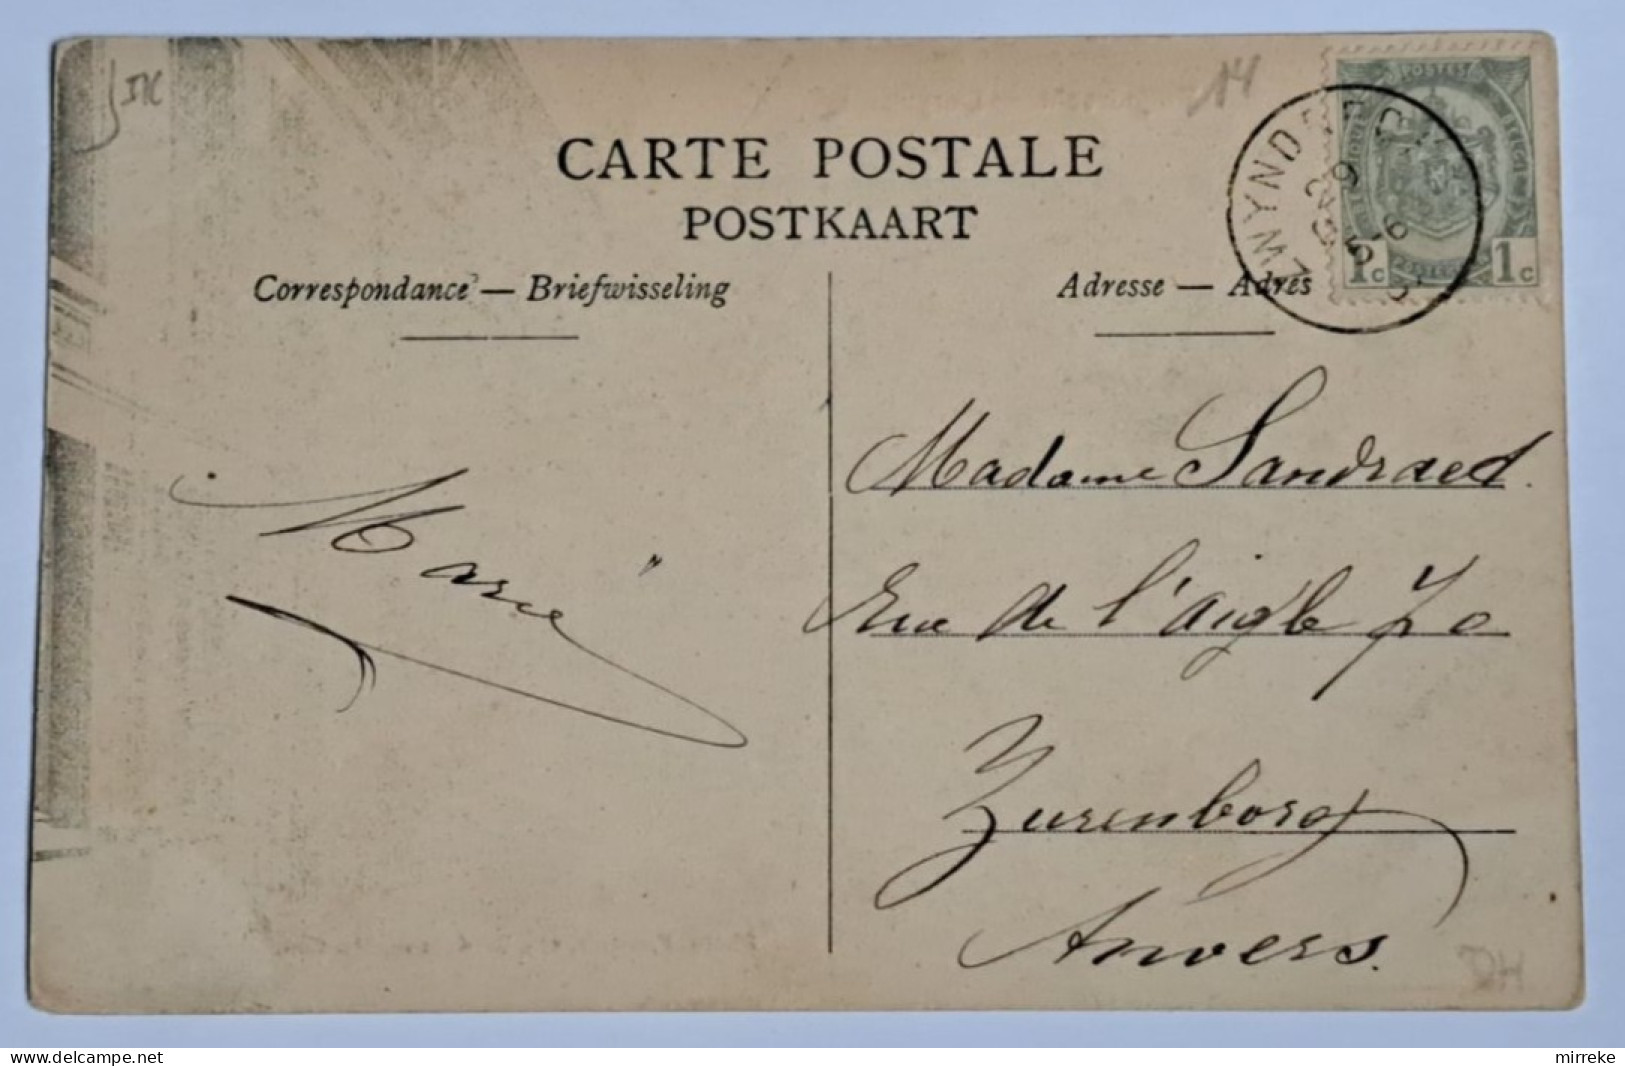 14
CARTE POSTALE
POSTKAART
Correspondance — Briefwisseling
Adresse — Adres
POSTES
1c 1c
Marie
Madame Sandraed
Rue de l'aigle 70
Zurenborg
Anvers.
DH
delcampe.net
mirreke